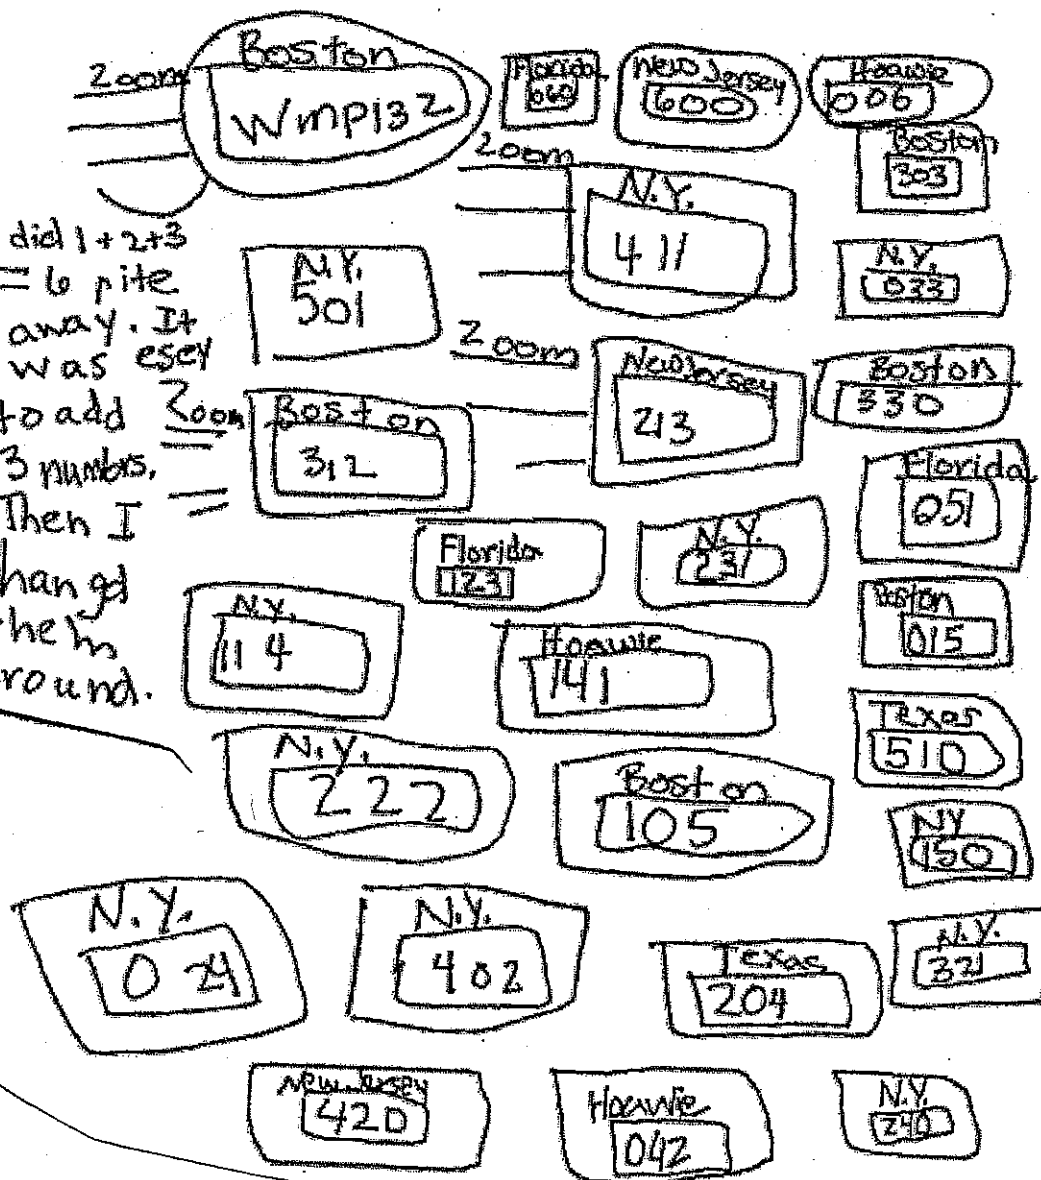 Boston
Zoom
Wmp132
Florida
060
New Jersey
600
Hoawie
006
Boston
303
Zoom
N.Y.
411
did 1+2+3
= 6 rite
away. It
was esey
to add
3 numbrs.
Then I
hangd
hem
round.
N.Y.
501
N.Y.
033
Zoom
New Jersey
213
Boston
330
Zoom
Boston
312
Florida
051
Florida
123
N.Y.
231
Boston
015
N.Y.
114
Hoawie
141
Texas
510
N.Y.
222
Boston
105
NY
150
N.Y.
024
N.Y.
402
Texas
204
N.Y.
321
New Jersey
420
Hoawie
042
N.Y.
240